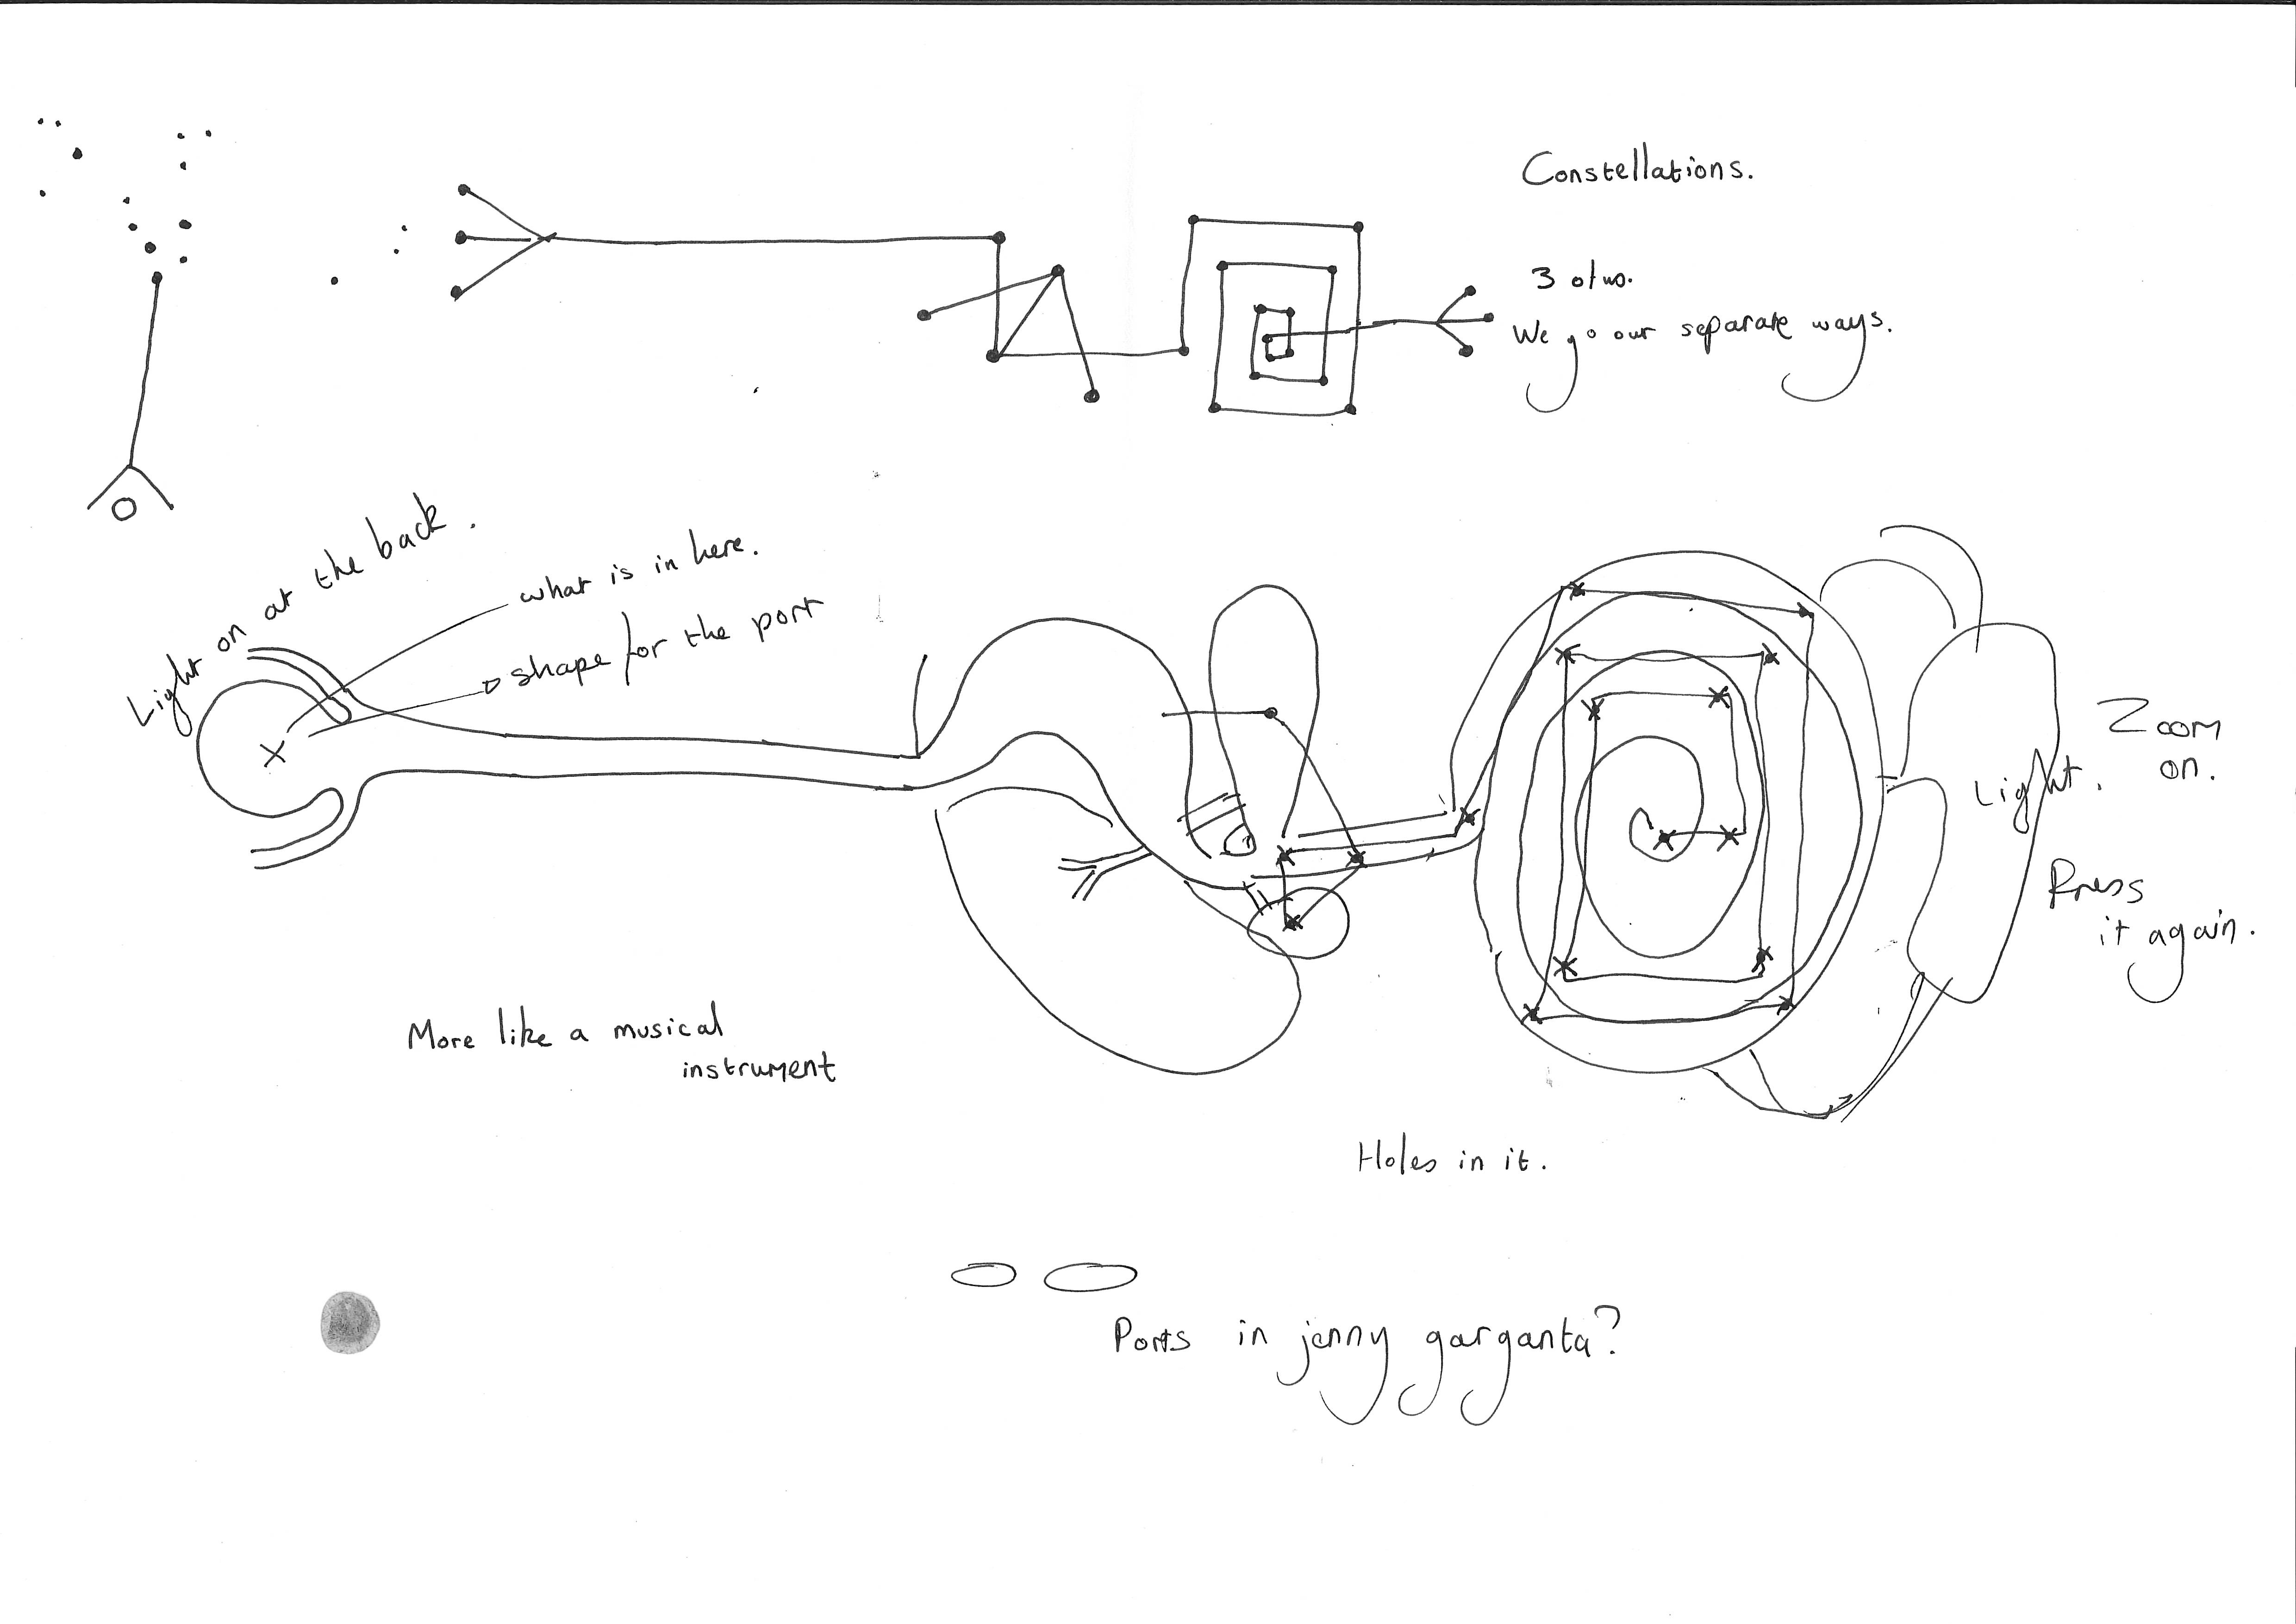 Constellations.
3 of us.
We go our separate ways.
Light on at the back.
what is in here.
shape for the port
Zoom
on.
Light.
Press
it again.
More like a musical
instrument
Holes in it.
Ports in jenny garganta?